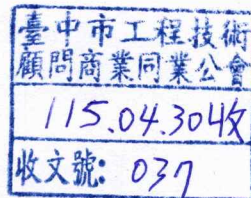 臺中市工程技術
顧問商業同業公會
115.04.30收
收文號: 037